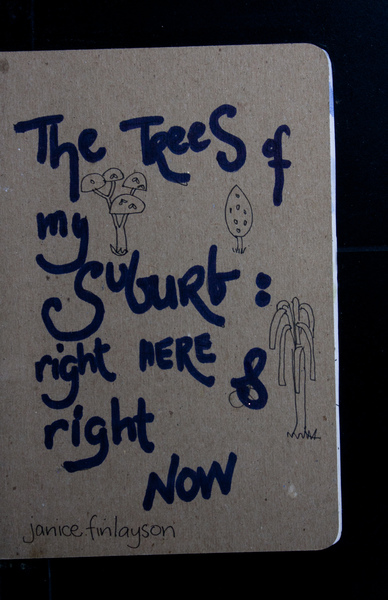 The Trees of
my
Suburb:
right HERE
&
right
NOW
janice.finlayson